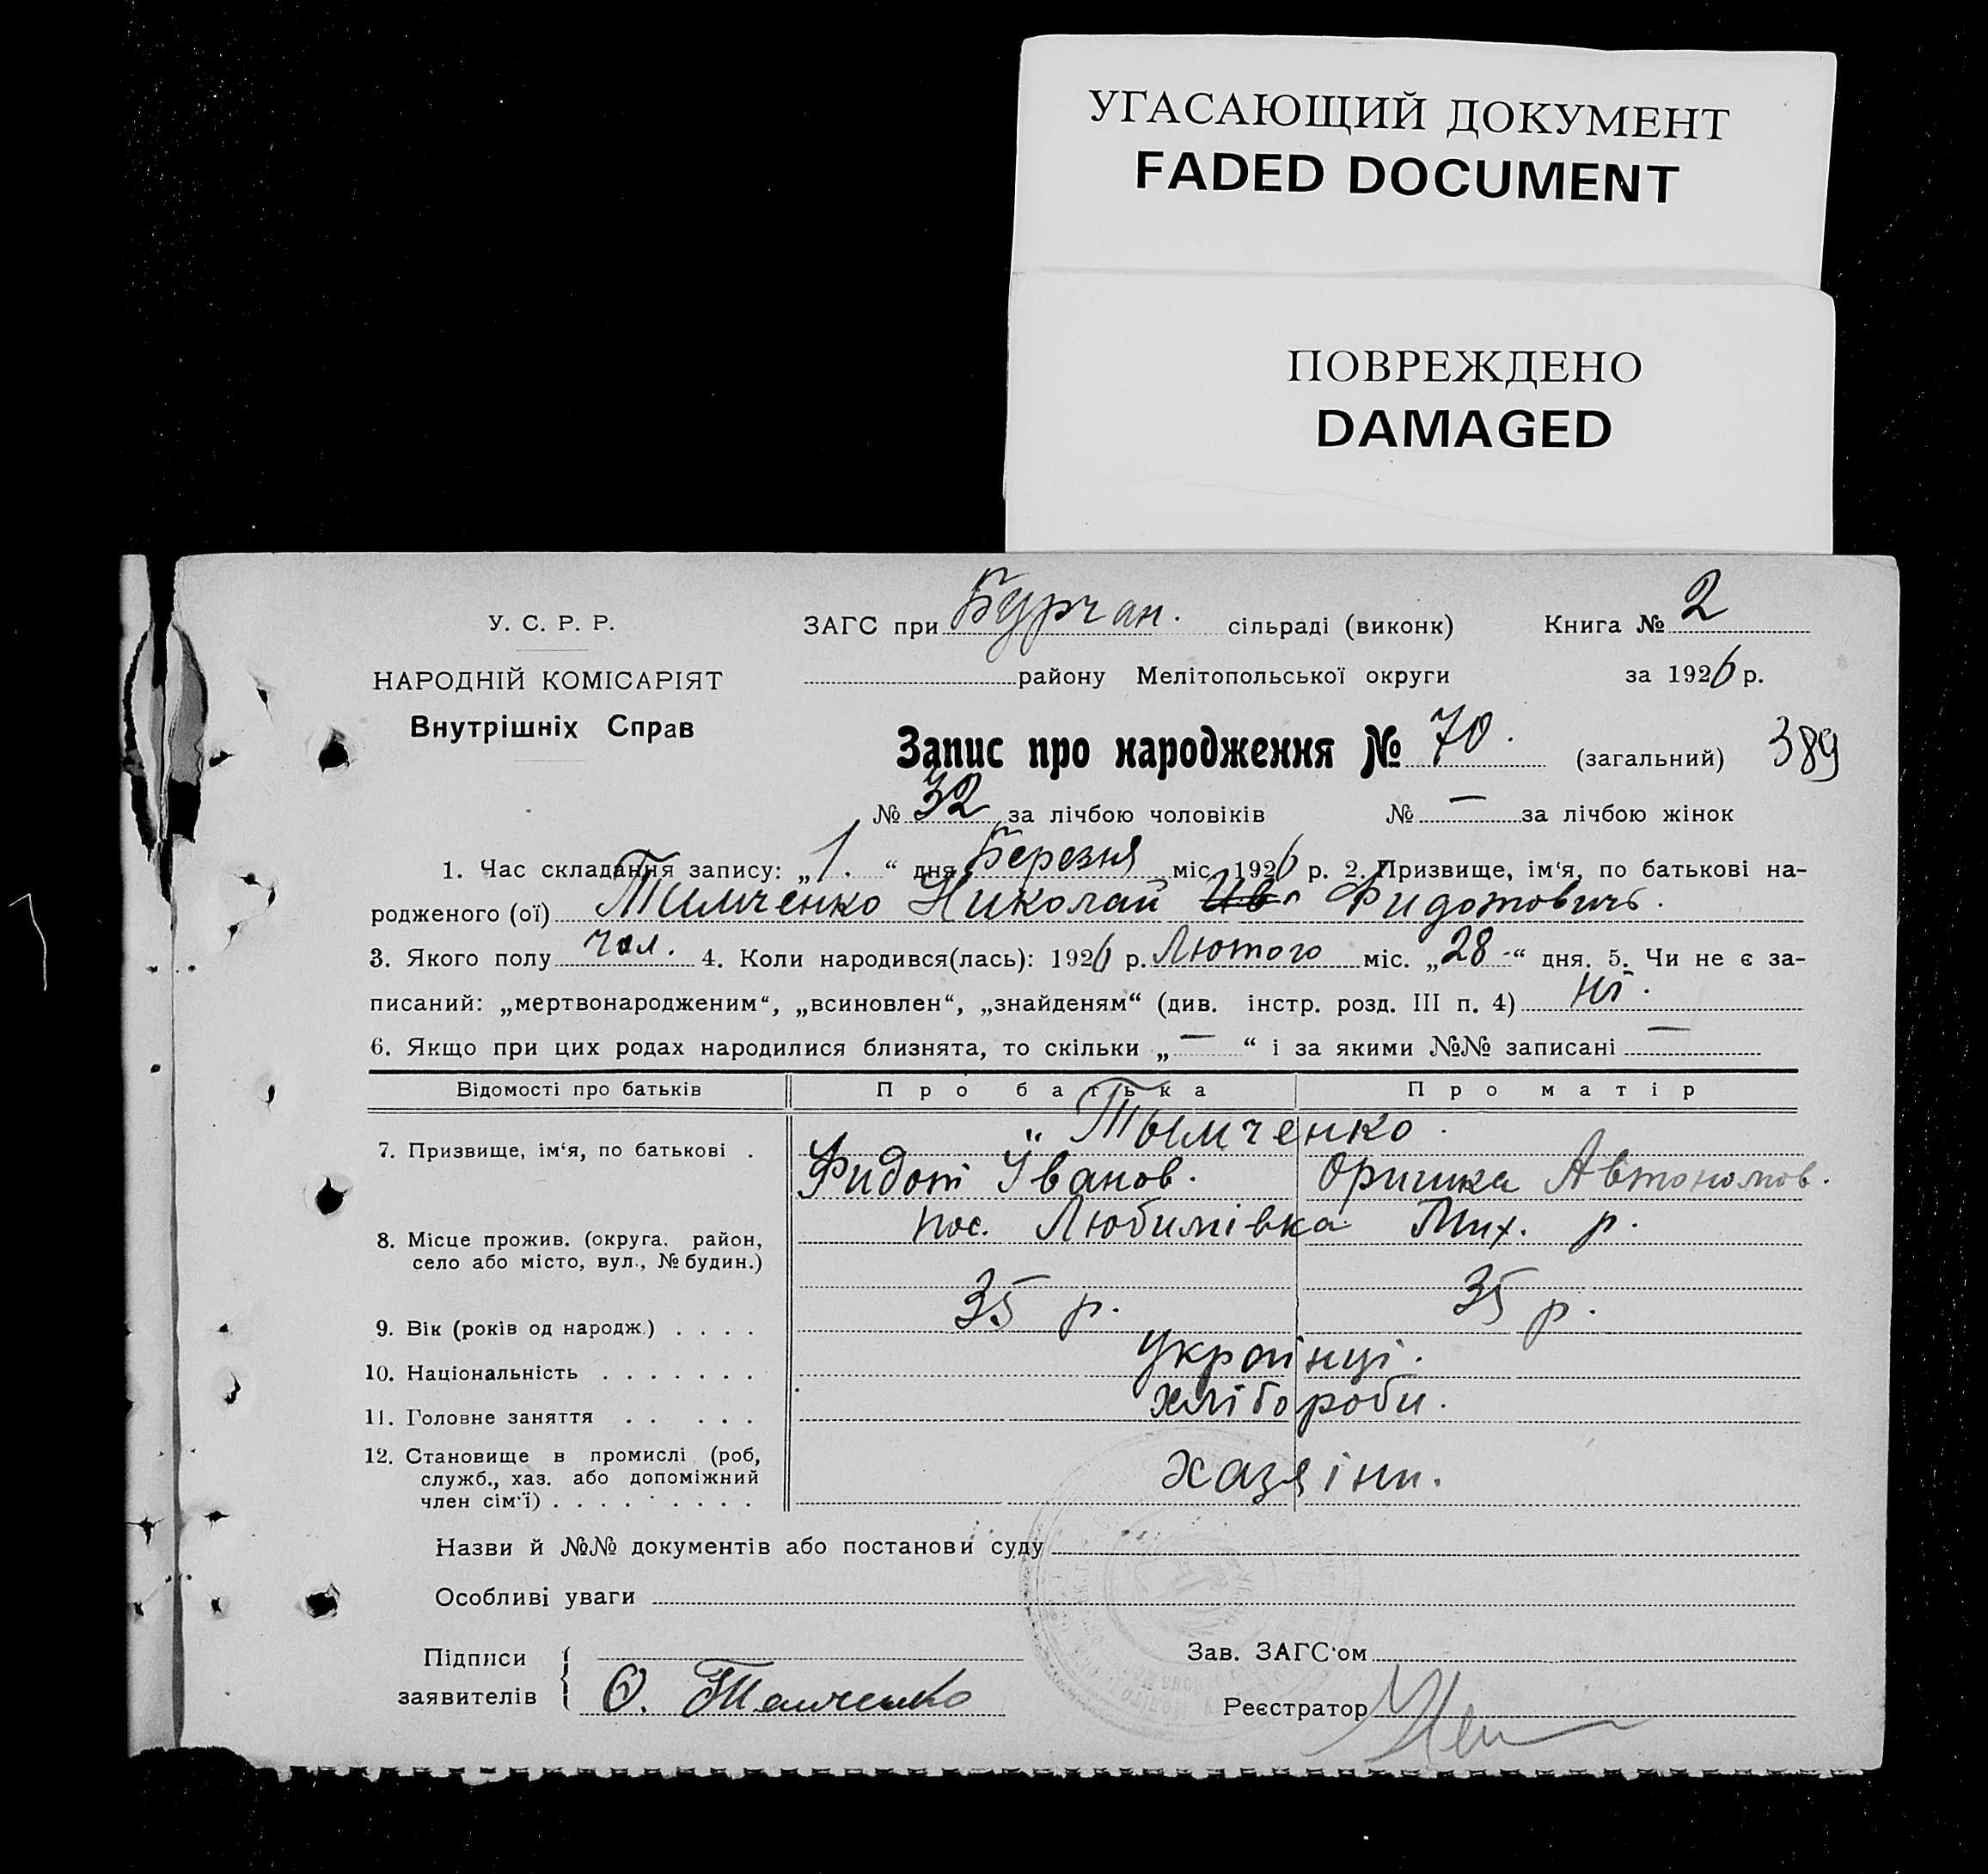 УГАСАЮЩИЙ ДОКУМЕНТ
FADED DOCUMENT
ПОВРЕЖДЕНО
DAMAGED
У. С. Р. Р.
НАРОДНІЙ КОМІСАРІЯТ
Внутрішніх Справ
ЗАГС при Бурчан. сільраді (виконк) Книга № 2
району Мелітопольської округи за 1926 р.
Запис про народження № 70. (загальний) 389
№ 32 за лічбою чоловіків № — за лічбою жінок
1. Час складання запису: „1.“ дня Березня міс. 1926 р. 2. Призвище, ім‘я, по батькові на-
родженого (ої) Тимченко Николай Ив Фидотовичь.
3. Якого полу чол. 4. Коли народився(лась): 1926 р. Лютого міс. „28-“ дня. 5. Чи не є за-
писаний: „мертвонародженим“, „всиновлен“, „знайденям“ (див. інстр. розд. III п. 4) Ні.
6. Якщо при цих родах народилися близнята, то скільки „—“ і за якими №№ записані —
Відомості про батьків Про батька Про матір
7. Призвище, ім‘я, по батькові . „ Тымченко.
Фидот Іванов. Оришка Автономов.
8. Місце прожив. (округа. район, село або місто, вул., № будин.) пос. Любимівка Мих. р.
9. Вік (років од народж.) . . . . 35 р. 35 р.
10. Національність . . . . . . . Українці.
11. Головне заняття . . . . . хлібороби.
12. Становище в промислі (роб,
служб., хаз. або допоміжний
член сім‘ї) . . . . . . . . . хазяіни.
Назви й №№ документів або постанови суду
Особливі уваги
Підписи
заявителів Ф. Тимченко
Зав. ЗАГС‘ом
Реєстратор